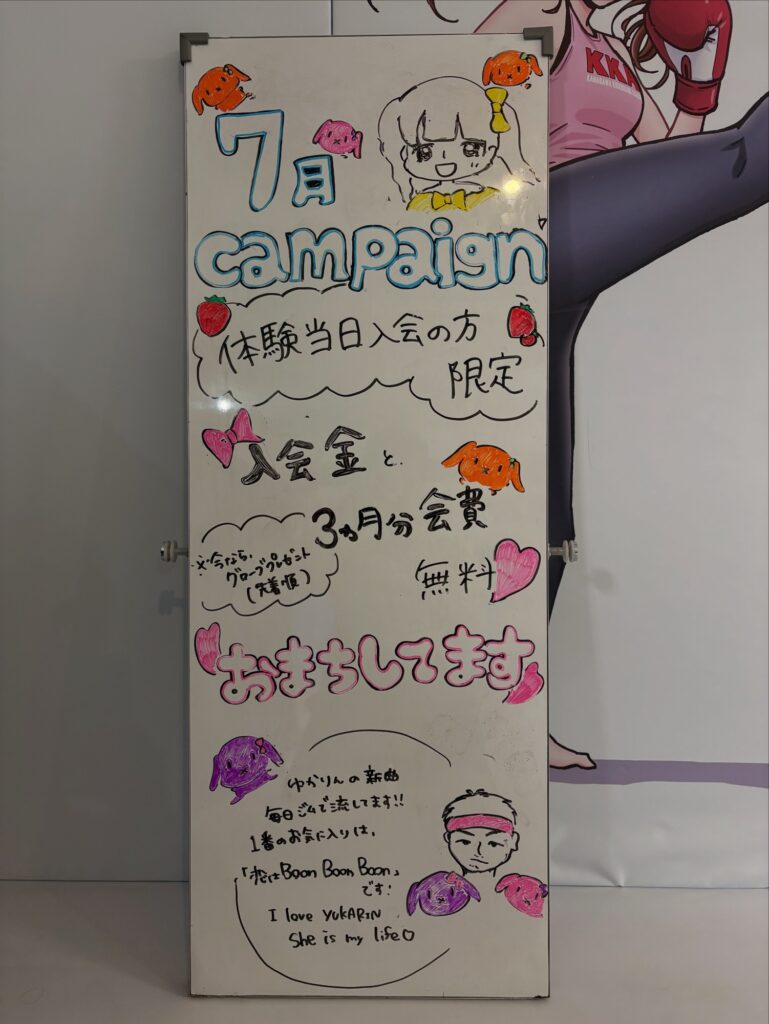 KKK
7月
campaign
体験当日入会の方
限定
入会金と
3ヵ月分会費
無料
※今なら、
グローブプレゼント
(先着順)
おまちしてます
ゆかりんの新曲
毎日ジムで流してます!!
1番のお気に入りは、
「恋はBoon Boon Boon」
です!
I love YUKARIN
She is my life♡